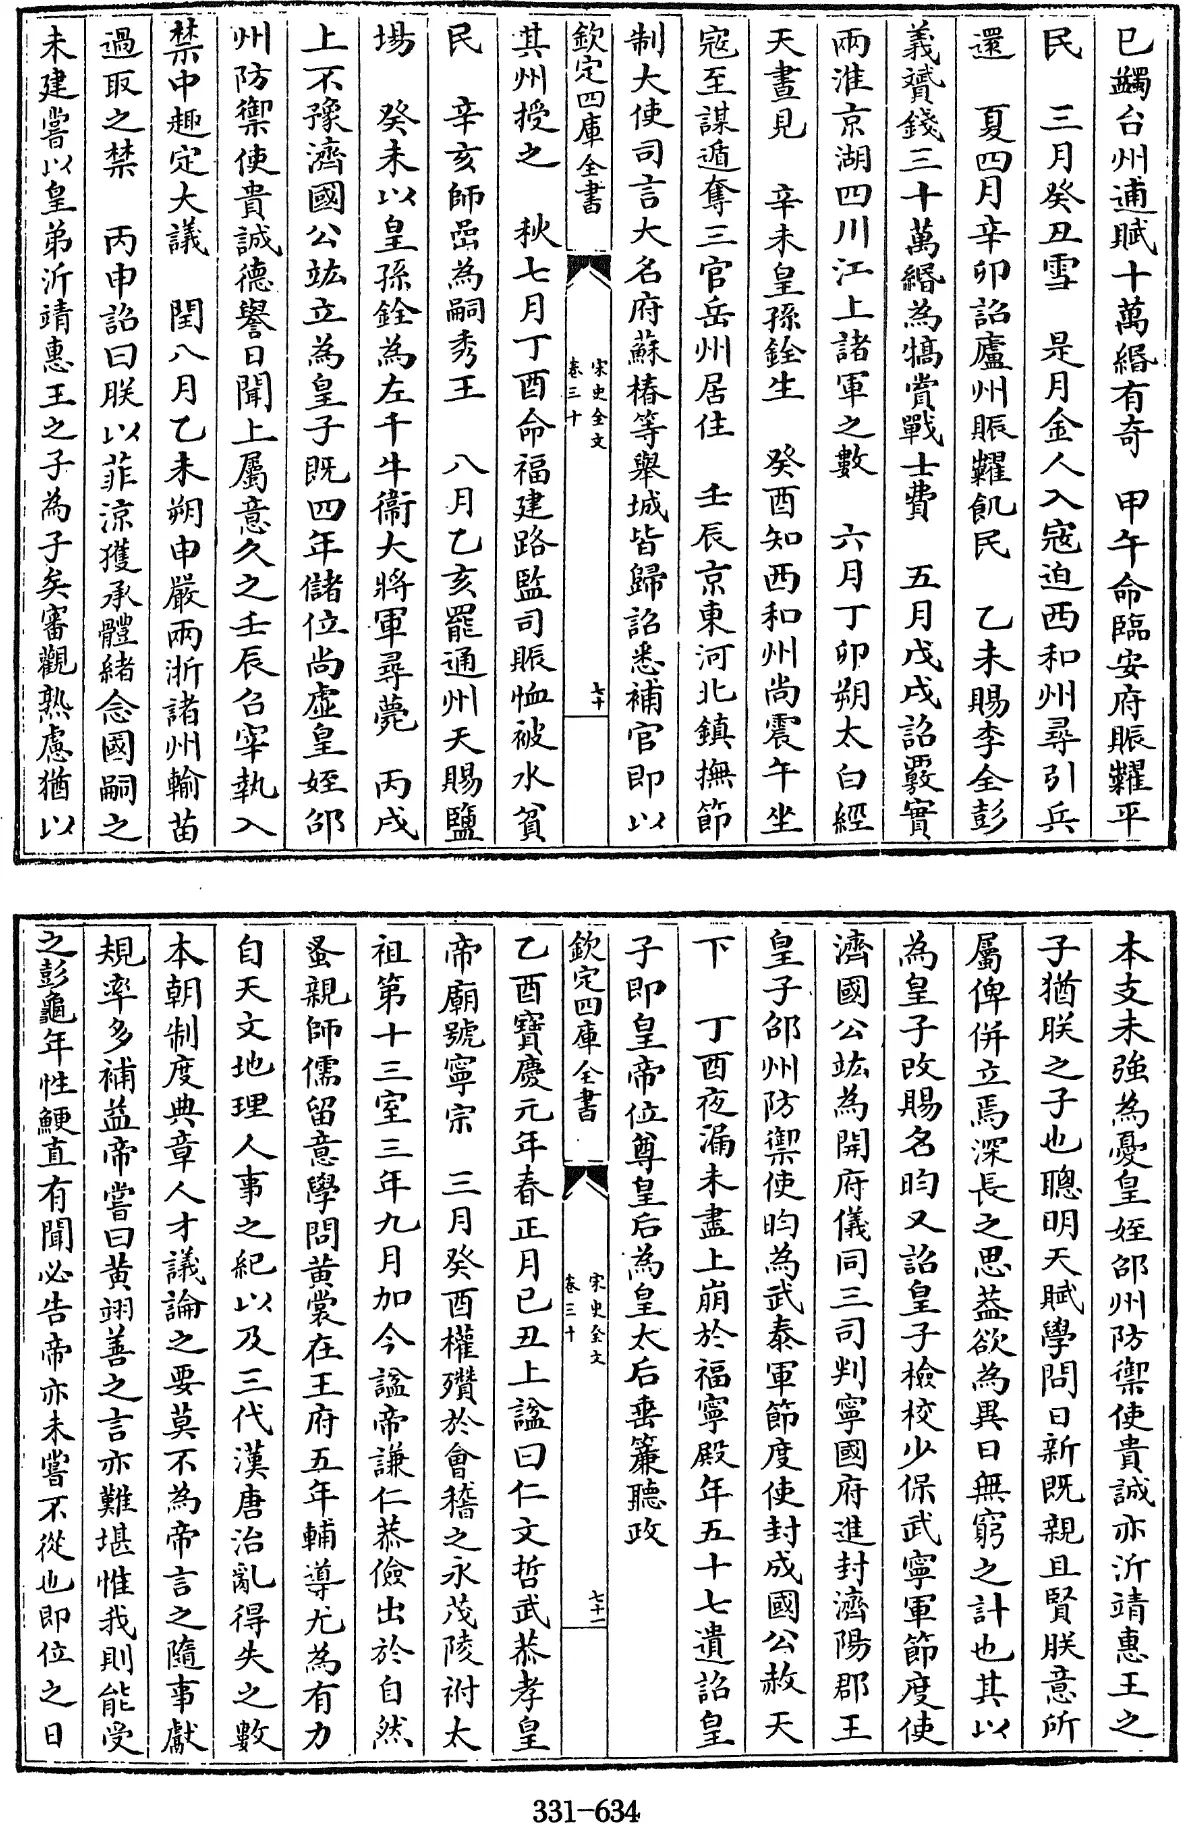 巳蠲台州逋賦十萬緡有奇　甲午命臨安府賑糶平
民　三月癸丑雪　是月金人入寇迫西和州尋引兵
還　夏四月辛卯詔廬州賑糶飢民　乙未賜李全彭
義贇錢三十萬緡為犒賞戰士費　五月戊戌詔覈實
兩淮京湖四川江上諸軍之數　六月丁卯朔太白經
天晝見　辛未皇孫銓生　癸酉知西和州尚震午坐
寇至謀遁奪三官岳州居住　壬辰京東河北鎮撫節
制大使司言大名府蘇椿等舉城皆歸詔悉補官即以
欽定四庫全書　宋史全文　卷三十　七十
其州授之　秋七月丁酉命福建路監司賑恤被水貧
民　辛亥師嵒為嗣秀王　八月乙亥罷通州天賜鹽
場　癸未以皇孫銓為左千牛衞大將軍尋薨　丙戌
上不豫濟國公竑立為皇子既四年儲位尚虛皇姪邵
州防禦使貴誠德譽日聞上屬意久之壬辰召宰執入
禁中趣定大議　閏八月乙未朔申嚴兩浙諸州輸苗
過取之禁　丙申詔曰朕以菲涼獲承體緒念國嗣之
未建嘗以皇弟沂靖惠王之子為子矣審觀熟慮猶以
本支未強為憂皇姪邵州防禦使貴誠亦沂靖惠王之
子猶朕之子也聰明天賦學問日新既親且賢朕意所
屬俾併立焉深長之思葢欲為異日無窮之計也其以
為皇子改賜名昀又詔皇子檢校少保武寧軍節度使
濟國公竑為開府儀同三司判寧國府進封濟陽郡王
皇子邵州防禦使昀為武泰軍節度使封成國公赦天
下　丁酉夜漏未盡上崩於福寧殿年五十七遺詔皇
子即皇帝位尊皇后為皇太后垂簾聽政
欽定四庫全書　宋史全文　卷三十　七十一
乙酉寶慶元年春正月己丑上諡曰仁文哲武恭孝皇
帝廟號寧宗　三月癸酉權殯於會稽之永茂陵祔太
祖第十三室三年九月加今諡帝謙仁恭儉出於自然
蚤親師儒留意學問黃裳在王府五年輔導尤為有力
自天文地理人事之紀以及三代漢唐治亂得失之數
本朝制度典章人才議論之要莫不為帝言之隨事獻
規率多補益帝嘗曰黃翊善之言亦難堪惟我則能受
之彭龜年性鯁直有聞必告帝亦未嘗不從也即位之日
331-634